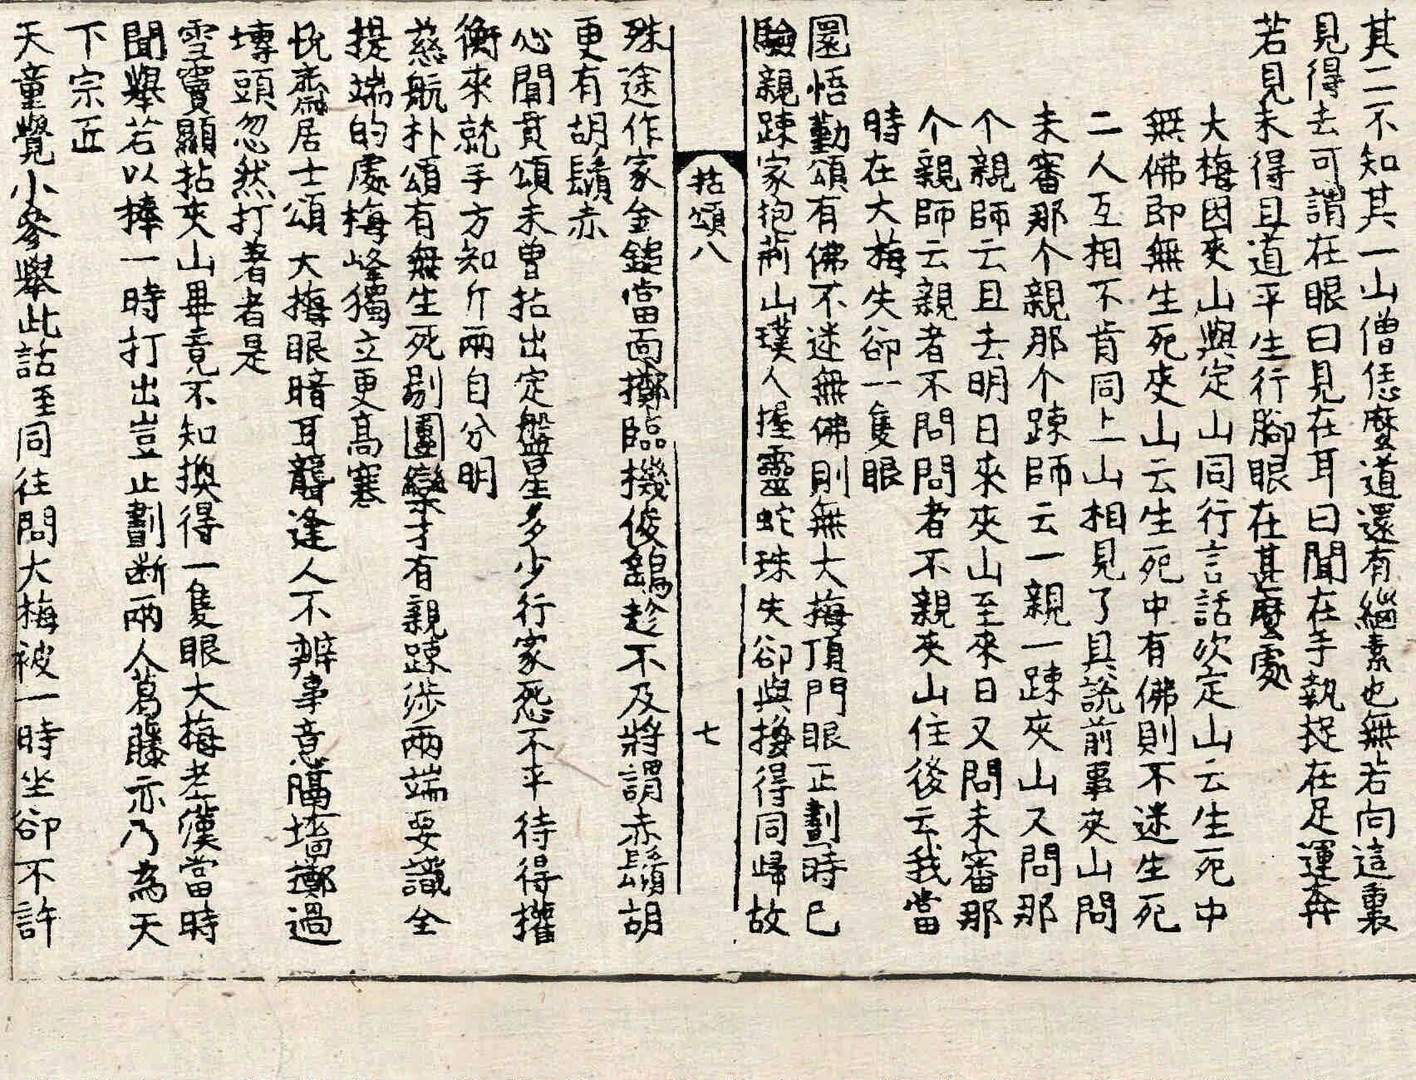 其二不知其一山僧恁麼道還有緇素也無若向這裏
見得去可謂在眼曰見在耳曰聞在手執捉在足運奔
若見未得且道平生行腳眼在甚麼處
大梅因夾山與定山同行言話次定山云生死中
無佛即無生死夾山云生死中有佛則不迷生死
二人互相不肯同上山相見了具說前事夾山問
未審那个親那个踈師云一親一踈夾山又問那
个親師云且去明日來夾山至來日又問未審那
个親師云親者不問問者不親夾山住後云我當
時在大梅失卻一隻眼
圜悟勤頌有佛不迷無佛則無大梅頂門眼正劃時已
驗親踈家抱荊山璞人握靈蛇珠失卻與換得同歸故
拈頌八
七
殊途作家金鎚當面擲臨機俊鷂趁不及將謂赤鬚胡
更有胡鬚赤
心聞賁頌未曾拈出定盤星多少行家惡不平待得權
衡來就手方知斤兩自分明
慈航朴頌有無生死剔團欒才有親踈涉兩端要識全
提端的處梅峰獨立更高寒
悅齋居士頌大梅眼暗耳聾逢人不辨事意隔墻擲過
塼頭忽然打著者是
雪竇顯拈夾山畢竟不知換得一隻眼大梅老漢當時
聞舉若以棒一時打出豈止劃斷兩人葛藤亦乃為天
下宗匠
天童覺小參舉此話至同往問大梅被一時坐卻不許